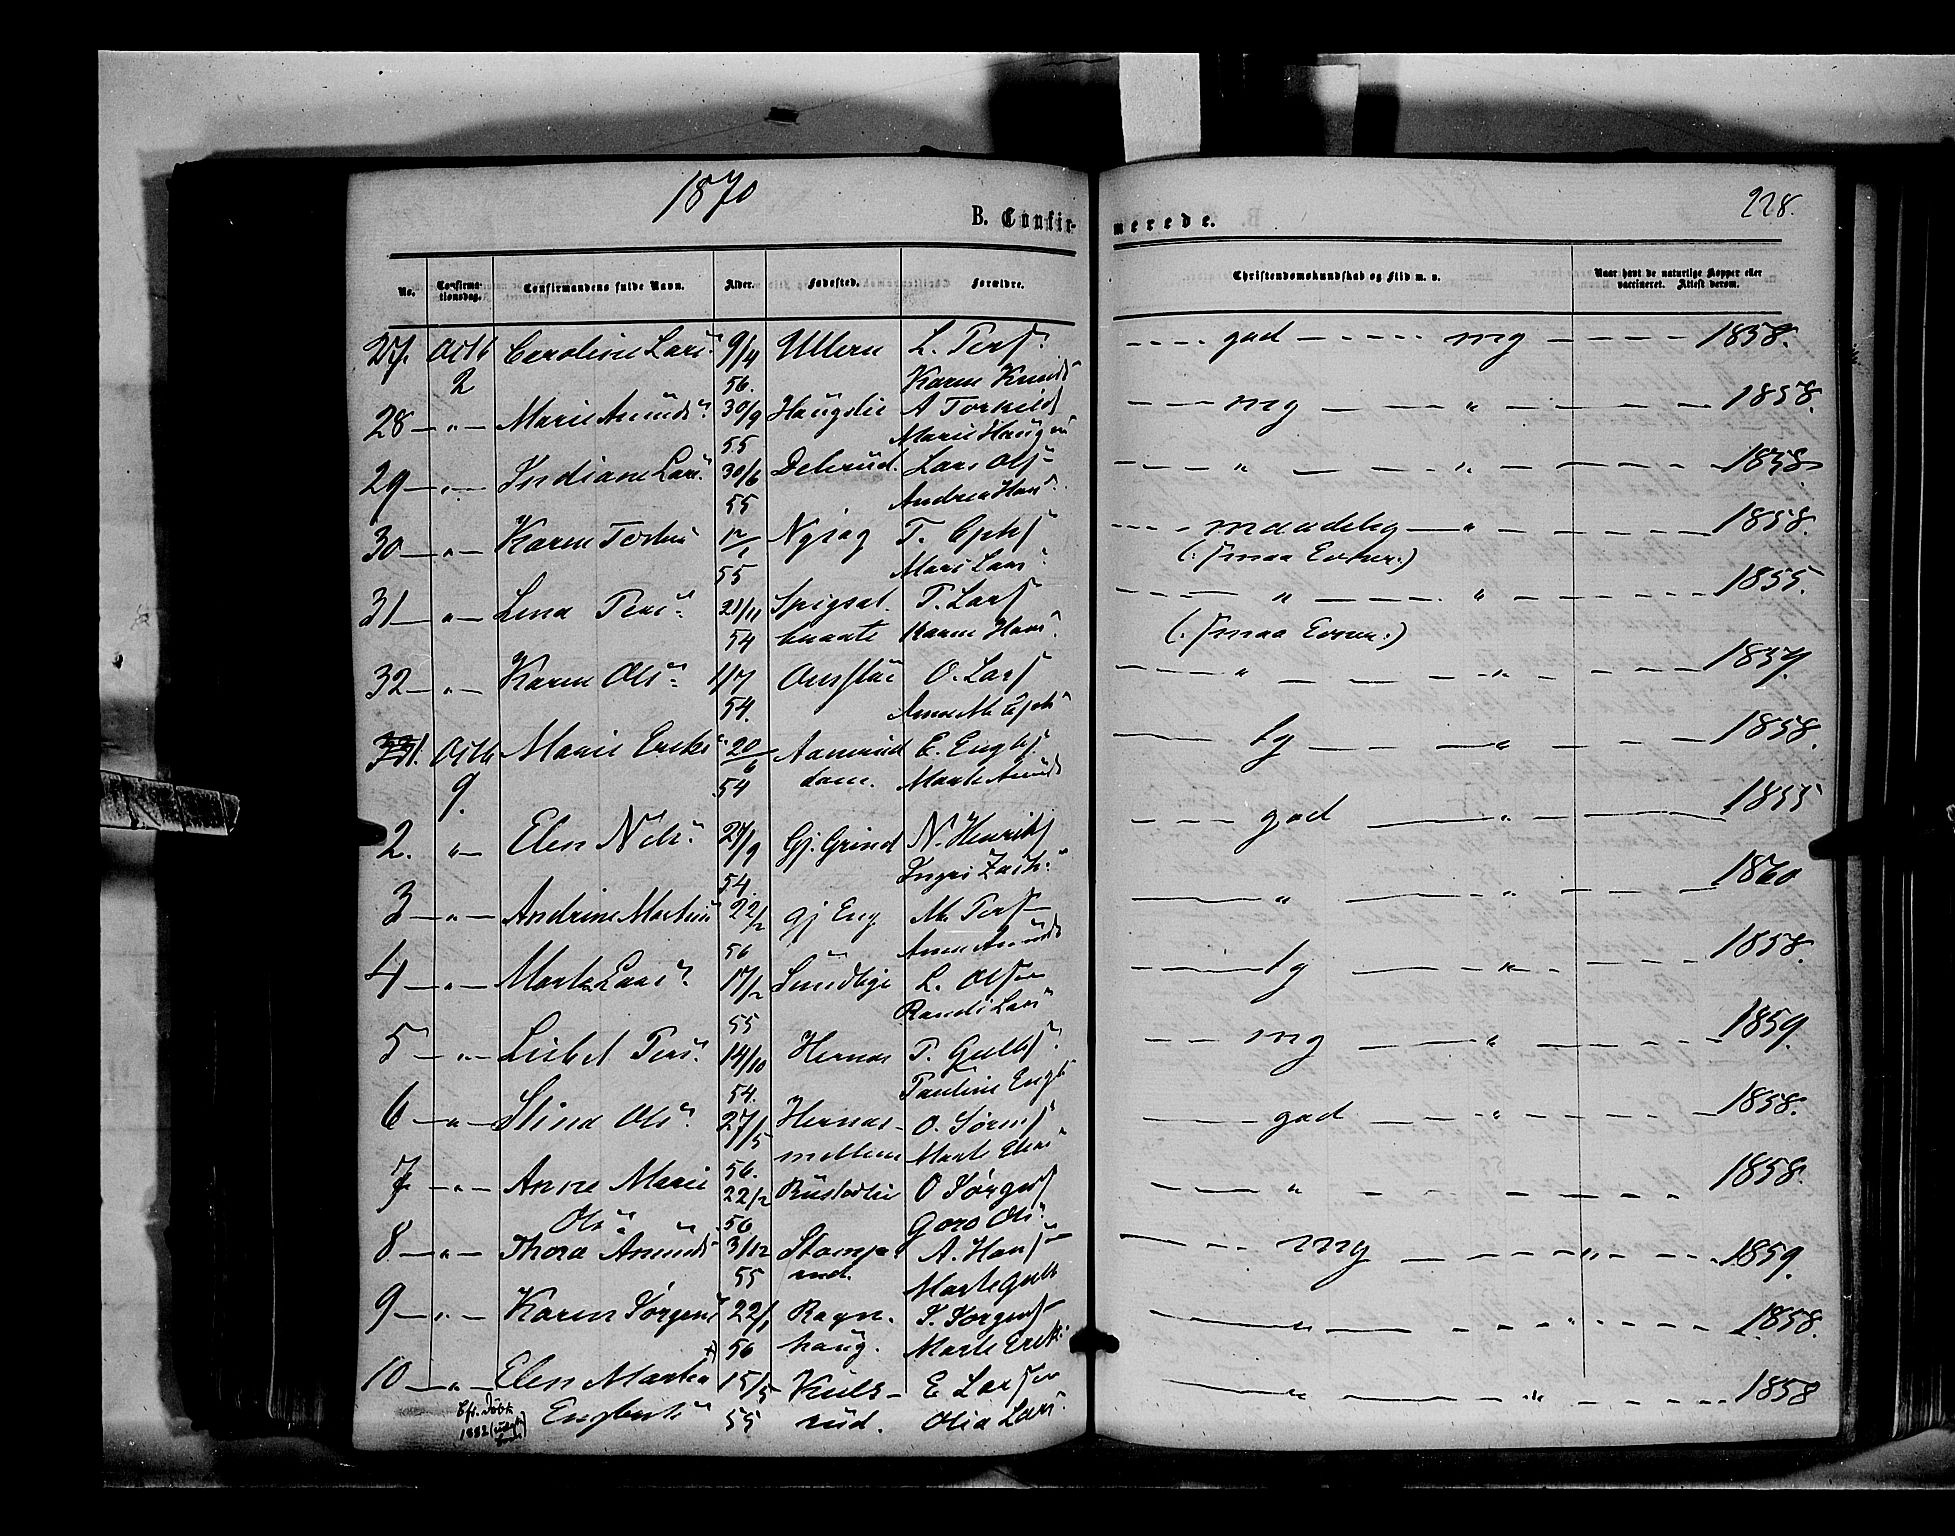 1870
228.
B. Confirmerede.
No. Confirmationsdag. Confirmandens fulde Navn. Alder. Fødested. Forældre. Christendomskundskab og Flid m. v. Naar havt de naturlige Kopper eller vaccineret. Attest derom.
27. Octb 2 Caroline Lars" 9/4 56. Ullern L. Pers" Karen Knuds" god mg 1858.
28 " Marie Amunds" 30/9 55 Haugslie A Torkelds Marie Haugen mg " 1858.
29 " Indiane Lars" 30/6 55 Delerud. Lars Ols Andrea Hans" " " 1858
30 " Karen 55 T. Mari Lars" maadelig " 1858.
(: smaa Evner :)
31 " Lena Pers" 21/11 54 Spigsetbraate P. Lars Karen Hans" " " 1855.
(: smaa Evner :)
32 " Karen Ols" 1/7 54. O. Lars Anne M. " " 1857.
1. Octb 9. Marie Eriks" 20/6 54 Aamruddam. E. Engbs Marte Amunds tg " 1858.
2. " Elen Nils" 27/9 54. Gj. Grind N. Henriks Ingri Zach" god " 1855
3 " Andrine Martins 22/2 56 gj Eng M. Pers Anne Amunds " " 1860
4 " Marte Lars" 17/2 55 Sundbye L. Olsen Randi Lars" tg " 1858.
5 " Lisbet Pers" 14/10 54. Hernæs P. Gulbs Pauline Engb mg " 1859.
6 " Stina Ols" 27/5 56. Hernæsmellem O. Sørens Marte god " 1858.
7 " Anne Marie Ols" 22/2 56 O Jørgens Goro Ols" " " 1858.
8 " Thora Amunds" 3/12 55 Stomperud. A. Hans Marte Gulb mg " 1859.
9 " Karen Jørgens 22/1 56 Ragnhaug. J. Jørgens Marte Erik " " 1858.
10 " Elen Martea x) Engbrets" 15/5 55 Kulsrud. E Larsen Olia Lars" " " 1858
Eft. Døbt 1882